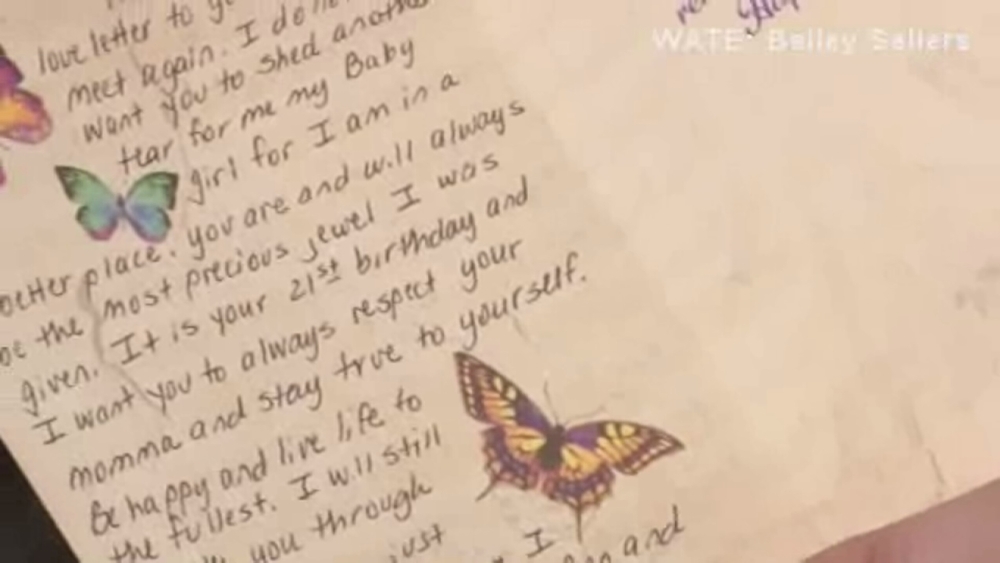 love letter to
meet again. I do
want you to shed another
tear for me my Baby
girl for I am in a
better place. you are and will always
be the most precious jewel I was
given. It is your 21st birthday and
I want you to always respect your
momma and stay true to yourself.
Be happy and live life to
the fullest. I will still
you through
just
I
and
WATE: Bailey Sellers